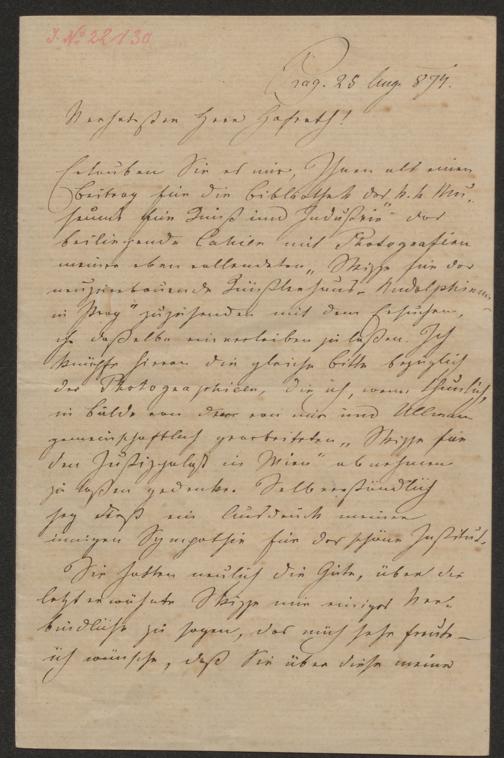 J. No 22130
Prag. 25 Aug. 874.
Verehrtester Herr Hofrath!
Erlauben Sie es mir, Ihnen als einen
Beitrag für die Bibliothek des k. k. Mu-
seums für Kunst und Industrie das
beiliegende Cahier mit Photografien
meiner eben vollendeten „Skizze für das
neuzuerbauende Künstlerhaus Rudolphinum
in Prag" zuzusenden mit dem Ersuchen,
daßelbe einverleiben zu laßen. Ich
knüpfe hieran die gleiche Bitte bezüglich
der Photographieen, die ich, wenn thunlich,
in Bälde von der von mir und Ullmann
gemeinschaftlich gearbeiteten „Skizze für
den Justizpalast in Wien" abnehmen
zu laßen gedenke. Selbverständlich
sey dieß ein Ausdruck meiner
innigen Sympathie für das schöne Institut.
Sie hatten neulich die Güte, über die
letzterwähnte Skizze mir einiges Ver-
bindliche zu sagen, das mich sehr freute –
ich wünsche, daß Sie über diese meine